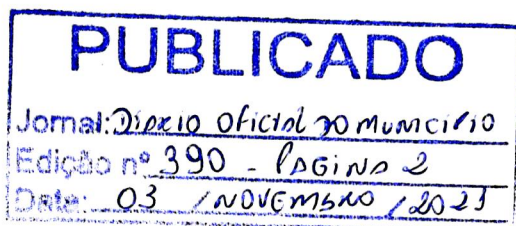 PUBLICADO
Jornal: DIÁRIO OFICIAL DO MUNICÍPIO
Edição nº 390 - PAGINA 2
Data: 03 / NOVEMBRO / 2021